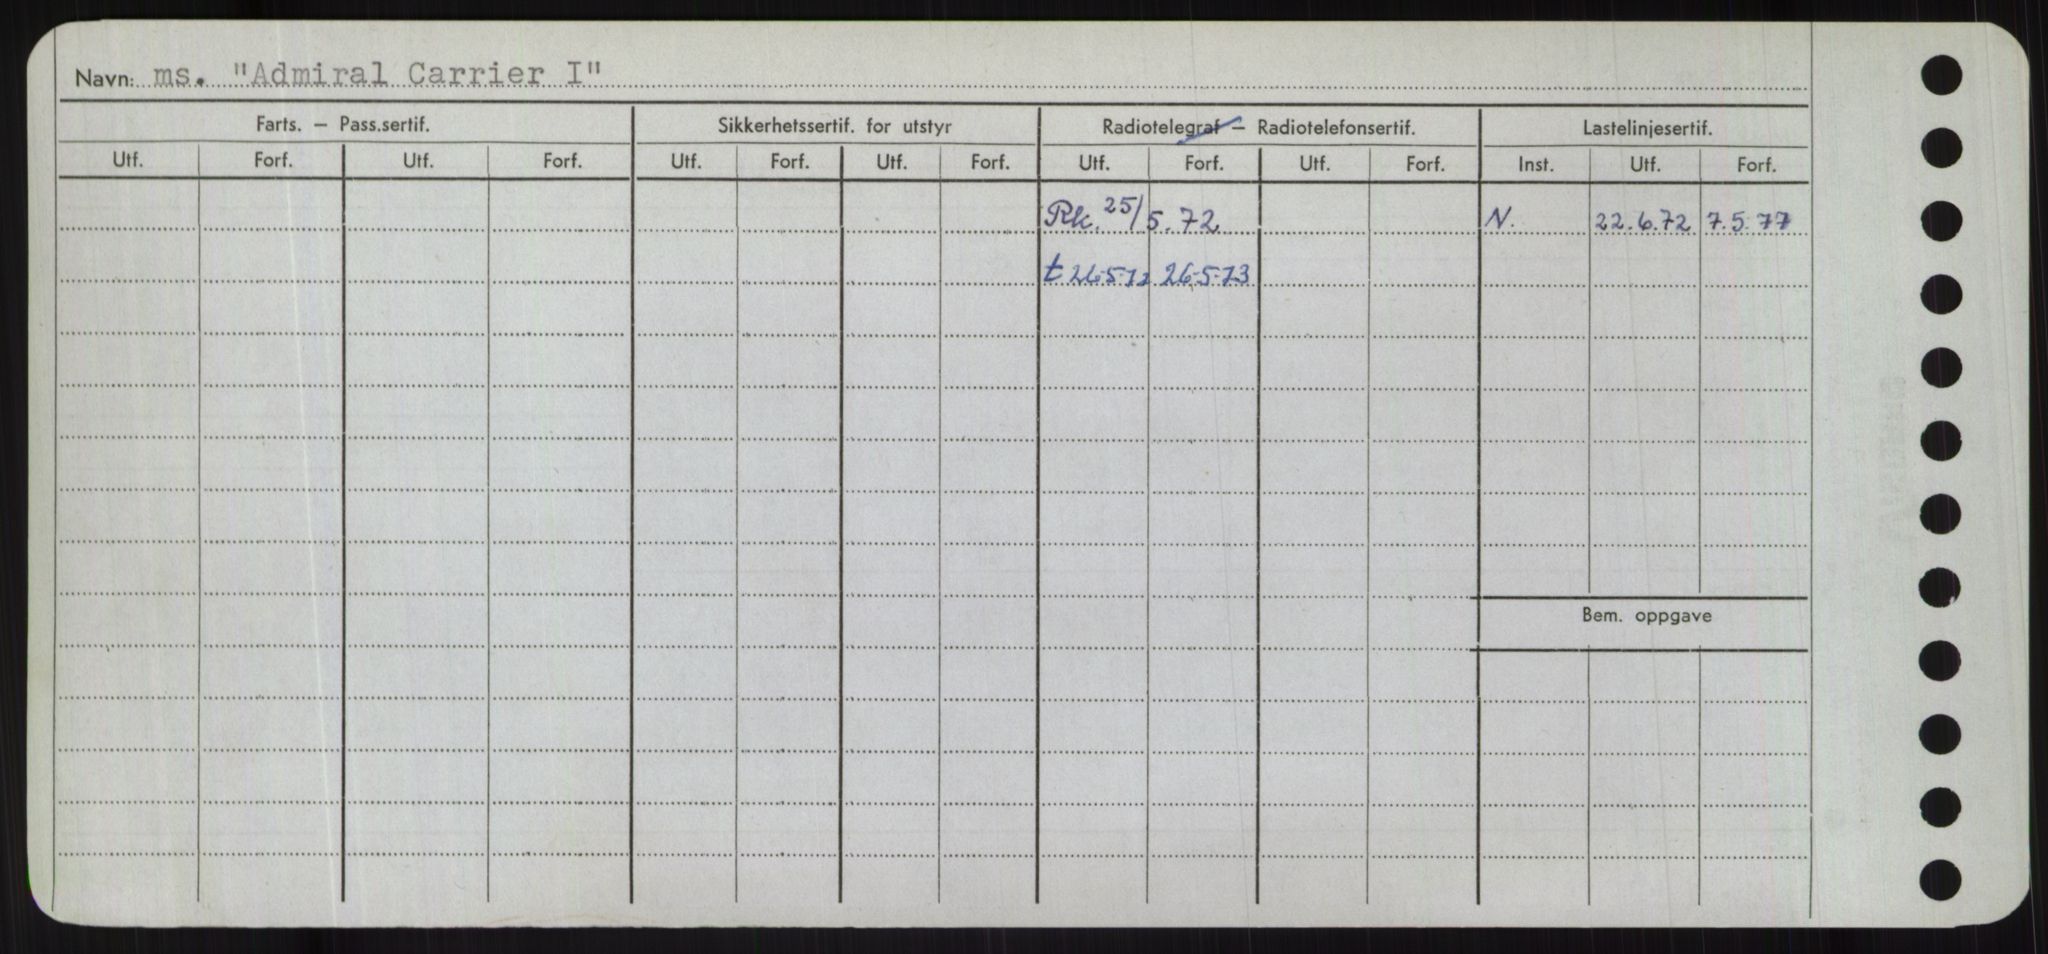 Navn: ms. "Admiral Carrier I"
Farts. — Pass.sertif. Sikkerhetssertif. for utstyr Radiotelegraf — Radiotelefonsertif. Lastelinjesertif.
Utf. Forf. Utf. Forf. Utf. Forf. Utf. Forf. Utf. Forf. Utf. Forf. Inst. Utf. Forf.
Rk. 25/5.72 N. 22.6.72 7.5.77
t 26-5-72 26-5-73
Bem. oppgave